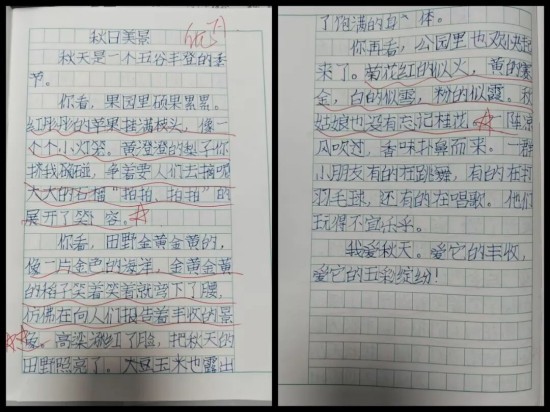 秋日美景
秋天是一个五谷丰登的季
节。
你看，果园里硕果累累。
红彤彤的苹果挂满枝头，像一
个个小灯笼。黄澄澄的梨子你
挤我碰，争着要人们去摘呢
大大的石榴“拍拍、拍拍”的
展开了笑容。
你看，田野金黄金黄的，
像一片金色的海洋，金黄金黄
的稻子笑着笑着就弯下了腰，
仿佛在向人们报告着丰收的景
象。高粱涨红了脸，把秋天的
田野照亮了。大豆玉米也露出
了饱满的身体。
你再看，公园里也欢快起
来了。菊花红的似火，黄的
金，白的似雪，粉的似霞。秋
姑娘也没有忘记桂花，一阵凉
风吹过，香味扑鼻而来。一群
小朋友有的在跳舞，有的在打
羽毛球，还有的在唱歌。他们
玩得不宜乐乎。
我爱秋天。爱它的丰收，
爱它的五彩缤纷！